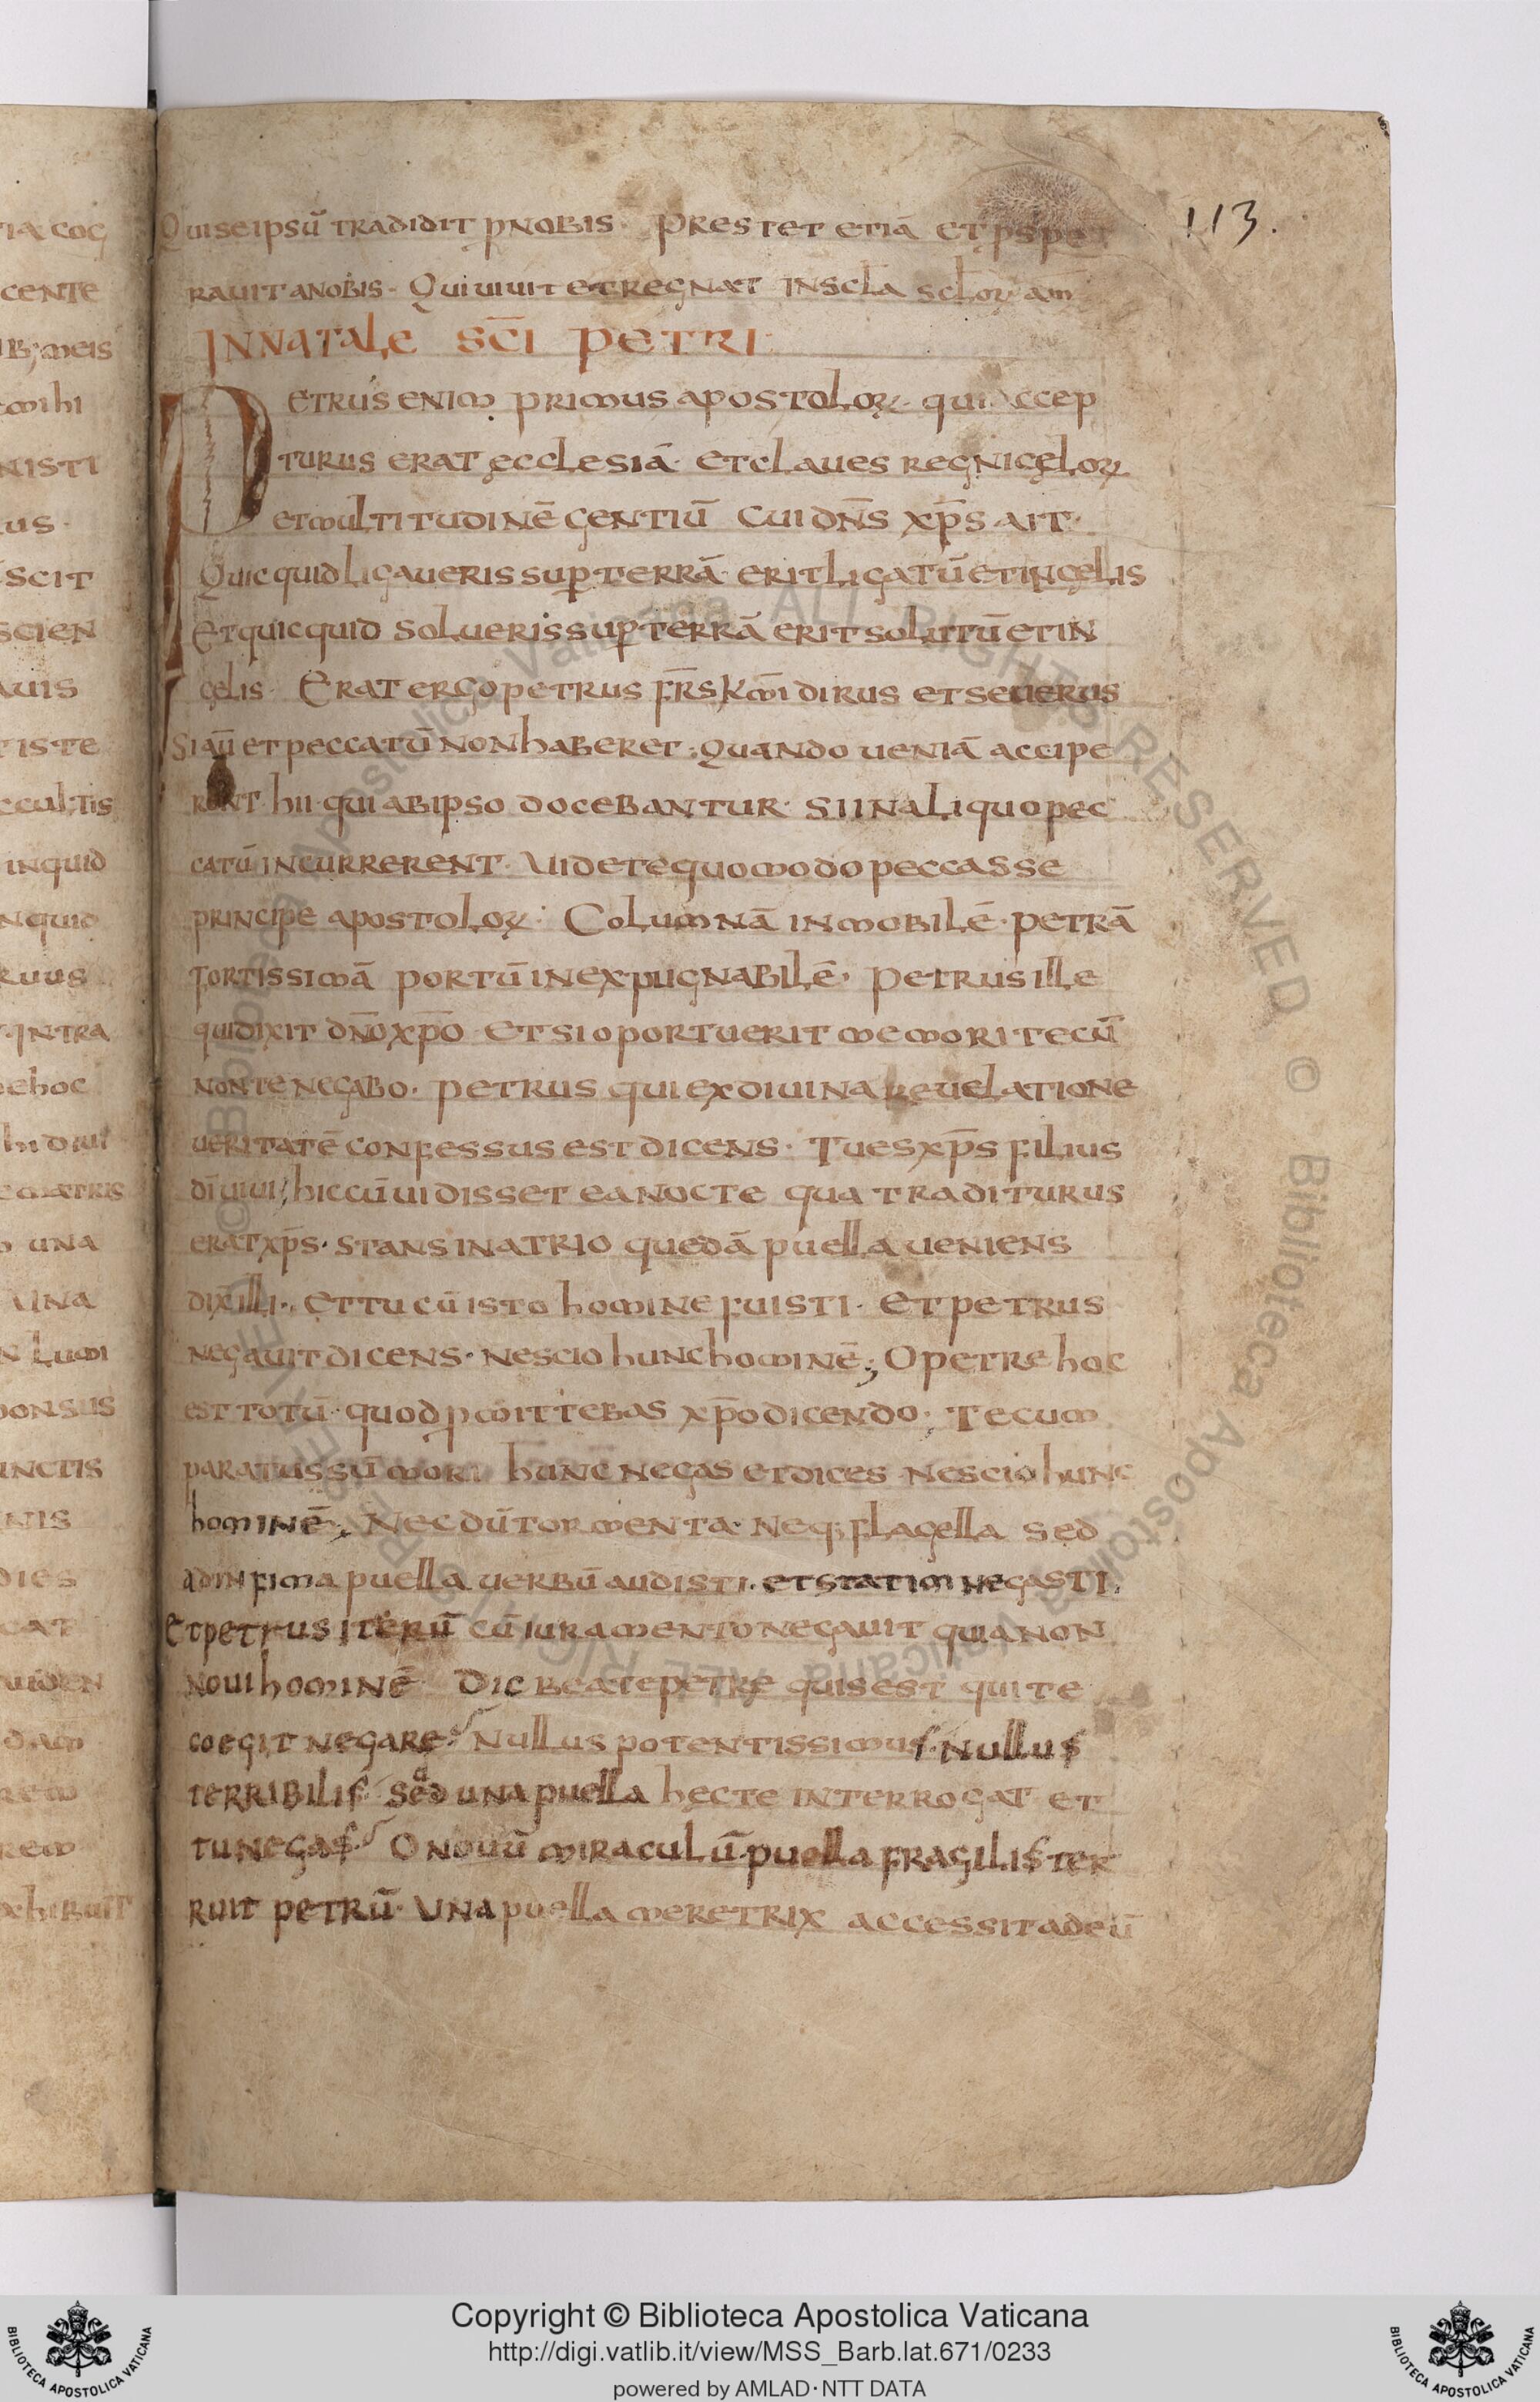 113.
Quiseipsū tradidit pnobis · Prestet etiā et
rauit anobis · Qui uiuit et regnat inscła scłoꝝ am
IN NATALE SCĪ PETRI ·
Petrus enim primus apostoloꝝ · qui accep
turus erat ęcclesiā · et claues regni cęloꝝ
et multitudinē gentiū Cui dn̄s xp̄s · ait ·
Quicquid ligaueris sup̱ terrā · erit ligatū et in cęlis
Et quicquid solueris sup̱ terrā erit solutū et in
cęlis · Erat ergo petrus fr̄s km̄i dirus et seuerus
Si aū et peccatū non haberet ; quando ueniā accipe
rent · hii · qui ab ipso docebantur · si in aliquo pec
catū incurrerent · Uidete quomodo peccasse
principē apostoloꝝ · Columnā inmobilē · petrā
fortissimā portū inexpugnabilē · Petrus ille
qui dixit dn̄o xp̄o Et si oportuerit me mori tecū
non te negabo · petrus qui ex diuina reuelatione
ueritatē confessus est dicens · Tu es xp̄s filius
dī uiui ; hic cū uidisset ea nocte qua traditurus
erat xp̄s · stans in atrio quedā puella ueniens
dix̄ illi · Et tu cū isto homine fuisti · Et petrus
negauit dicens · nescio hunc hominē ; O petre hoc
est totū · quod ꝓmittebas xp̄o dicendo ; Tecum
paratus sū mori hunc negas et dices nescio hunc
hominē ; Nec dū tormenta · neq; flagella sed
ad infima puella uerbū audisti · et statim negasti ·
Et petrus iterū cū iuramento negauit quia non
noui hominē Dic beate petre quis est qui te
coegit negare · Nullus potentissimus · Nullus
terribilis · Sed una puella hęc te interrogat et
tu negas · O nouū miraculū · puella fragilis ter
ruit petrū · Una puella meretrix accessit ad eū
Copyright © Biblioteca Apostolica Vaticana
http://digi.vatlib.it/view/MSS_Barb.lat.671/0233
powered by AMLAD·NTT DATA
BIBLIOTECA APOSTOLICA VATICANA
BIBLIOTECA APOSTOLICA VATICANA